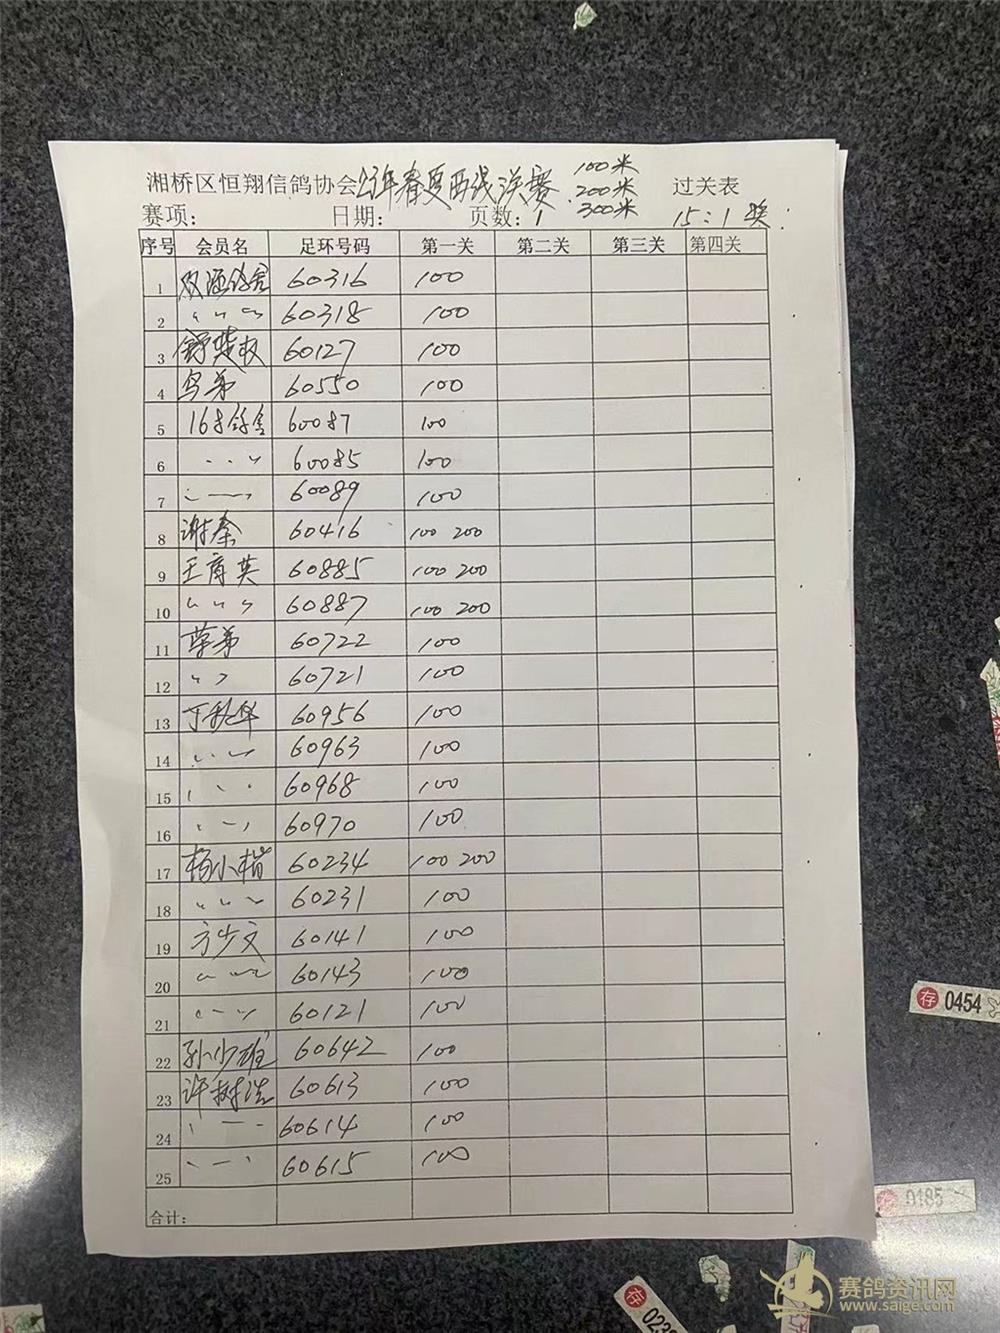 100米
湘桥区恒翔信鸽协会23年春夏西线决赛 200米 过关表
赛项: 日期: 页数:1 300米 15:1奖
序号 会员名 足环号码 第一关 第二关 第三关 第四关
1 60316 100
2 〃 〃 〃 60318 100
3 60127 100
4 乌弟 60550 100
5 60087 100
6 〃 〃 〃 60085 100
7 〃 〃 60089 100
8 谢泰 60416 100 200
9 王育英 60885 100 200
10 〃 〃 〃 60887 100 200
11 60722 100
12 〃 〃 60721 100
13 丁秋华 60956 100
14 〃 〃 〃 60963 100
15 〃 〃 〃 60968 100
16 〃 〃 〃 60970 100
17 杨小楷 60234 100 200
18 〃 〃 〃 60231 100
19 方少文 60141 100
20 〃 〃 〃 60143 100
21 〃 〃 〃 60121 100
22 孙少雄 60642 100
23 许树浩 60613 100
24 〃 〃 〃 60614 100
25 〃 〃 〃 60615 100
合计:
存 0454
0185
存
赛鸽资讯网
www.saige.com